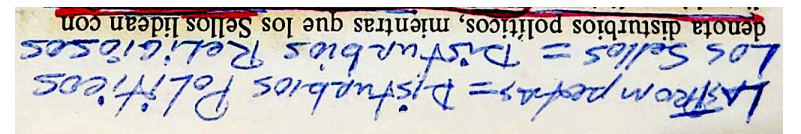 LAS TROMpetas= DisturBios PoLiticos
Los Sellos = DisturBios ReLiGiosos
denota disturbios políticos, mientras que los Sellos lidean con